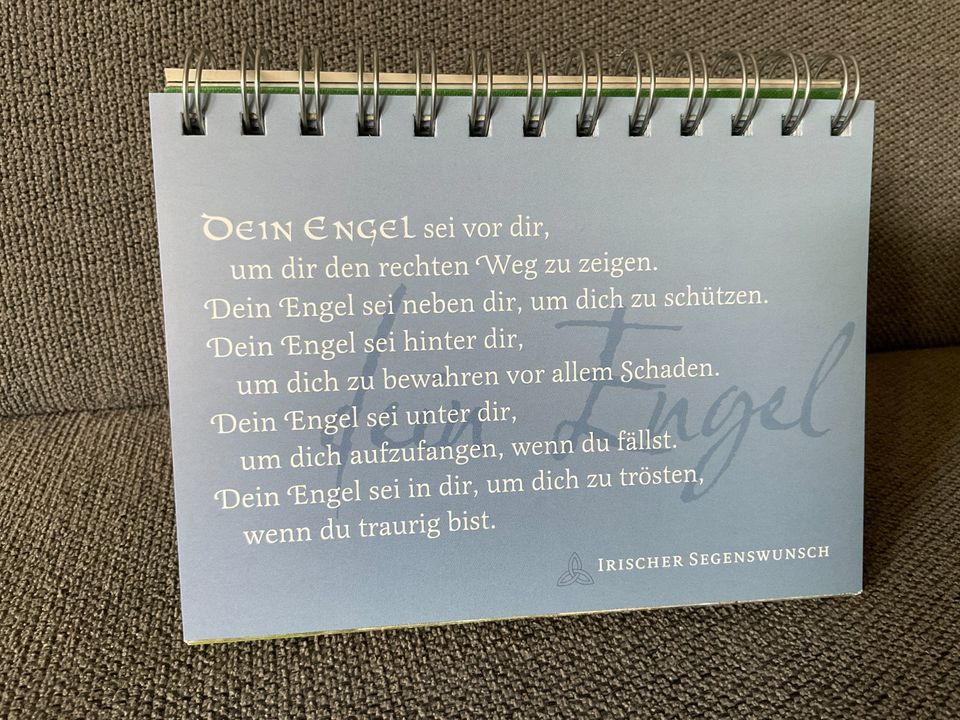 Dein Engel sei vor dir,
um dir den rechten Weg zu zeigen.
Dein Engel sei neben dir, um dich zu schützen.
Dein Engel sei hinter dir,
um dich zu bewahren vor allem Schaden.
Dein Engel sei unter dir,
um dich aufzufangen, wenn du fällst.
Dein Engel sei in dir, um dich zu trösten,
wenn du traurig bist.
Irischer Segenswunsch
dein Engel